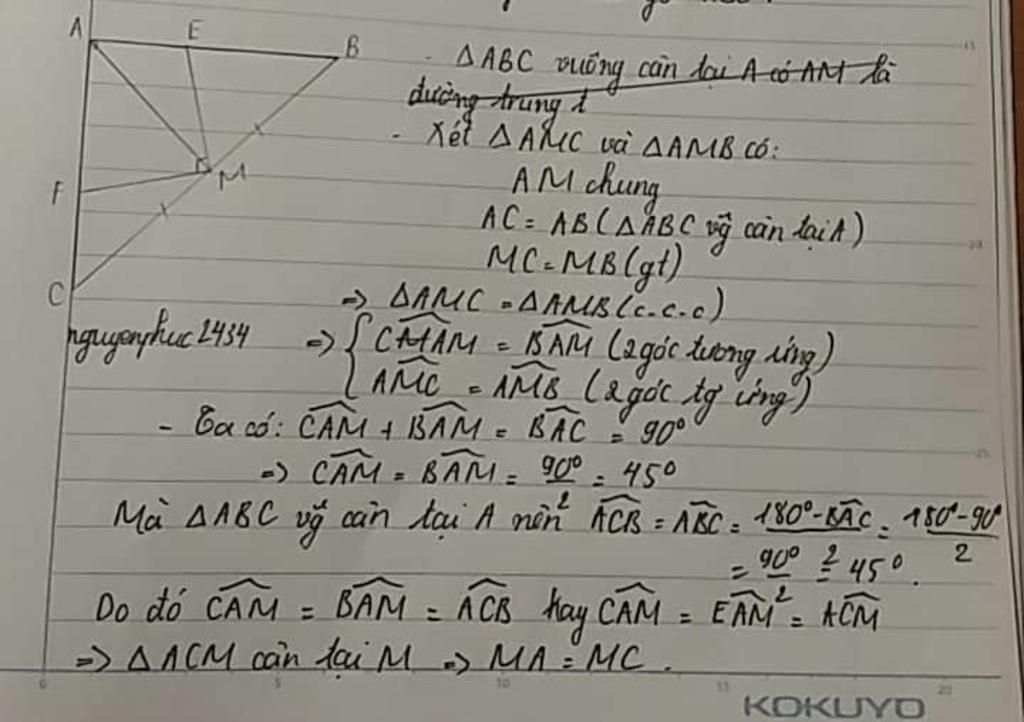 A E B
F M
C
- ΔABC vuông cân tại A có AM là
đường trung t
- Xét ΔAMC và ΔAMB có:
AM chung
AC = AB (ΔABC vg cân tại A)
MC = MB (gt)
=> ΔAMC = ΔAMB (c-c-c)
nguyenphuc2434
=> { CMAM = BAM (2 góc tương ứng)
AMC = AMB (2 góc tg ứng)
- Ta có: CAM + BAM = BAC = 90°
=> CAM = BAM = 90°/2 = 45°
Mà ΔABC vg cân tại A nên ACB = ABC = (180° - BAC)/2 = (180° - 90°)/2
= 90°/2 = 45°.
Do đó CAM = BAM = ACB hay CAM = EAM = ACM
=> ΔACM cân tại M => MA = MC.
0 5 10 15 20
KOKUYO